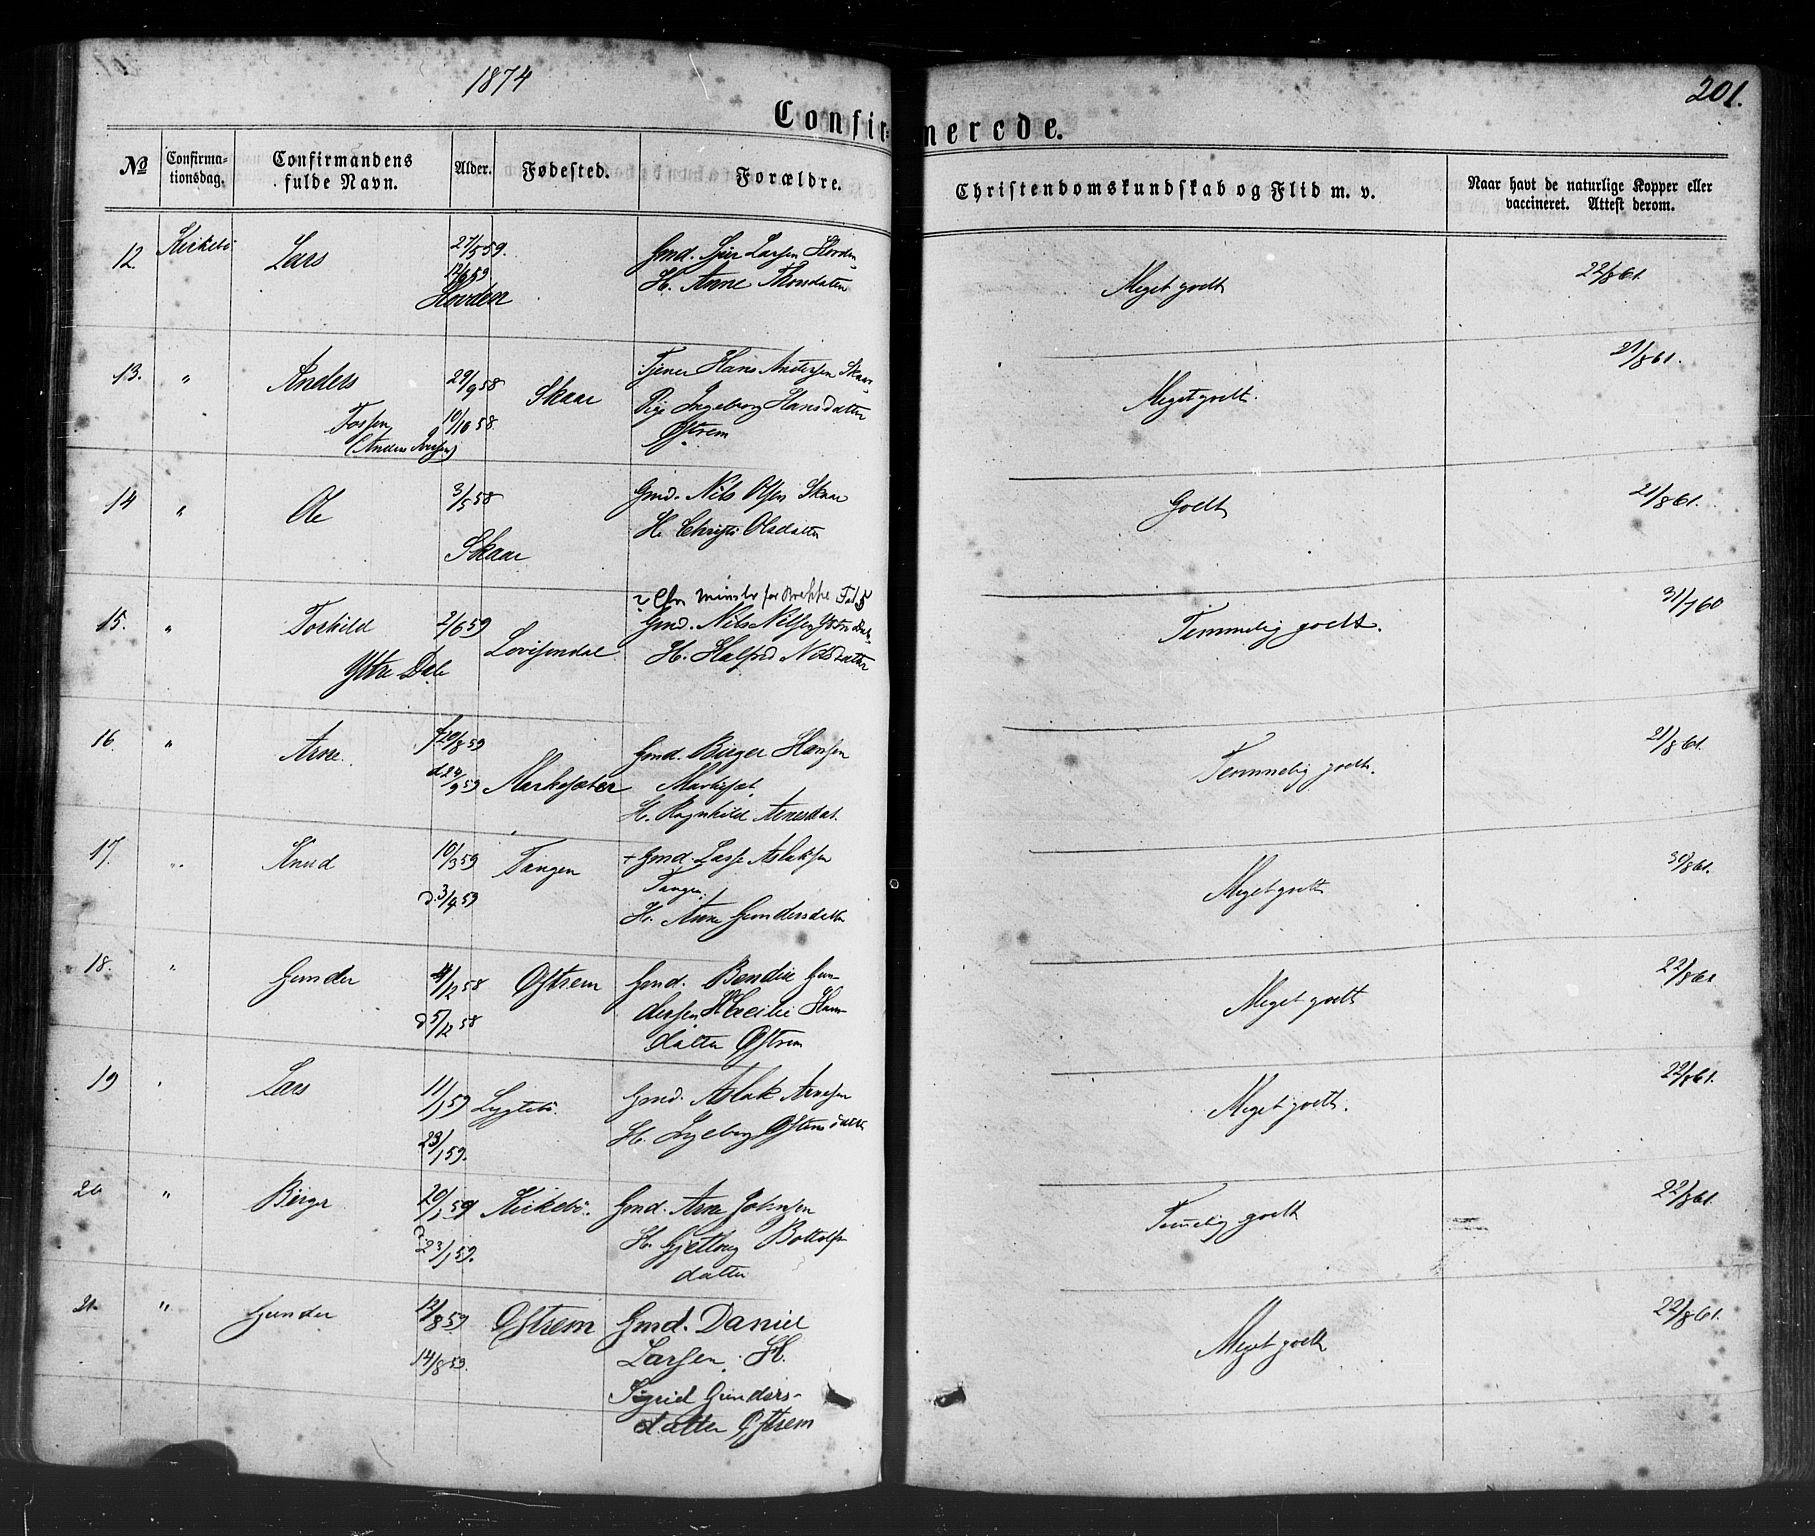 1874
201.
Confirmerede.
No
Confirma-
tionsdag.
Confirmandens
fulde Navn.
Alder.
Fødested.
Forældre.
Christendomskundskab og Flid m. v.
Naar havt de naturlige Kopper eller
vaccineret. Attest derom.
12. Kirkebö Lars 27/5 59. Gmd. Larsen Hovden
Hovden H. Anne
Meget godt 22/8 61.
13. " Anders 29/9 58 Skaar Tjener Hans Andersen Skaar
10/10 58. Pige Ingeborg Hansdatter
Østrem
Meget godt. 21/8 61.
14 " Ole 3/5 58 Gmd. Nils Olsen Skaar
Skaar H. Christi Olsdatter
Godt 21/8 61.
15. " Torkild 2/6 59 Gmd. Nils Nilsen Ytre Dale
Ytre Dale H. Nilsdatter
Temmelig godt. 31/7 60
16. " Arne. f 20/8 59 Gmd. Birger Hansen
d 24/9 59 Markesæter
H. Ragnhild Arnesdat.
Temmelig godt. 21/8 61.
17. " Knud 10/3 59 Tangen + Gmd. Lasse Aslaksen
d 3/4 59 Tangen.
H. Anne Gundersdatter
Meget godt 30/8 61.
18. " Gunder 4/12 58 Østrem Gmd. Bendix Gun-
d 5/12 58 dersen H. Cecilie Hans-
datter Østrem
Meget godt 22/8 61
19 Lars 11/1 59 Lygtebö. Gmd. Aslak Arnesen
23/1 59. H. Ingeborg
Meget godt. 22/8 61.
20 " Birger 20/1 59 Kirkebö. Gmd. Arne Johnsen
d 23/1 59. H. Bottolfs-
datter
Temelig godt 22/8 61.
21. " Gunder 12/8 59 Østrem Gmd. Daniel
14/8 59. Larsen. H.
Sigrid Gunders-
datter Østrem
Meget godt 22/8 61.